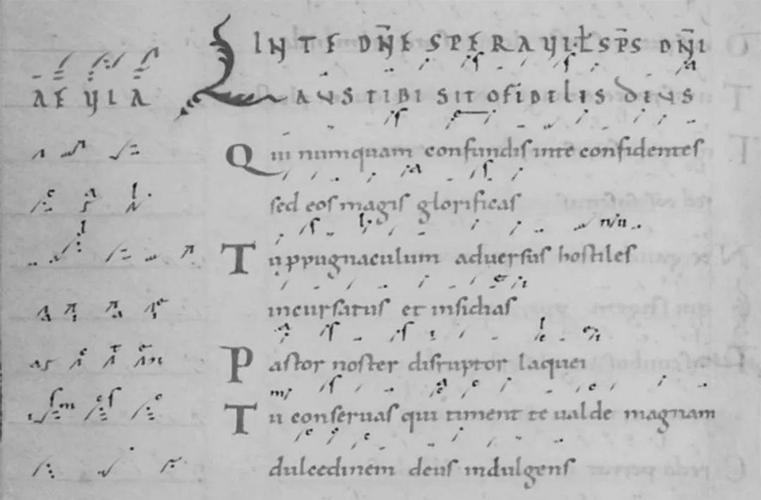 IN TE DN̄E SPERAVI · L SP̄S DN̄I
AEVIA LAUS TIBI SIT O FIDELIS DEUS
Qui numquam confundis in te confidentes
sed eos magis glorificas
Tu ppugnaculum adversus hostiles
incursatus et insidias
Pastor noster disruptor laquei
Tu conservas qui timent te valde magnam
dulcedinem deus indulgens